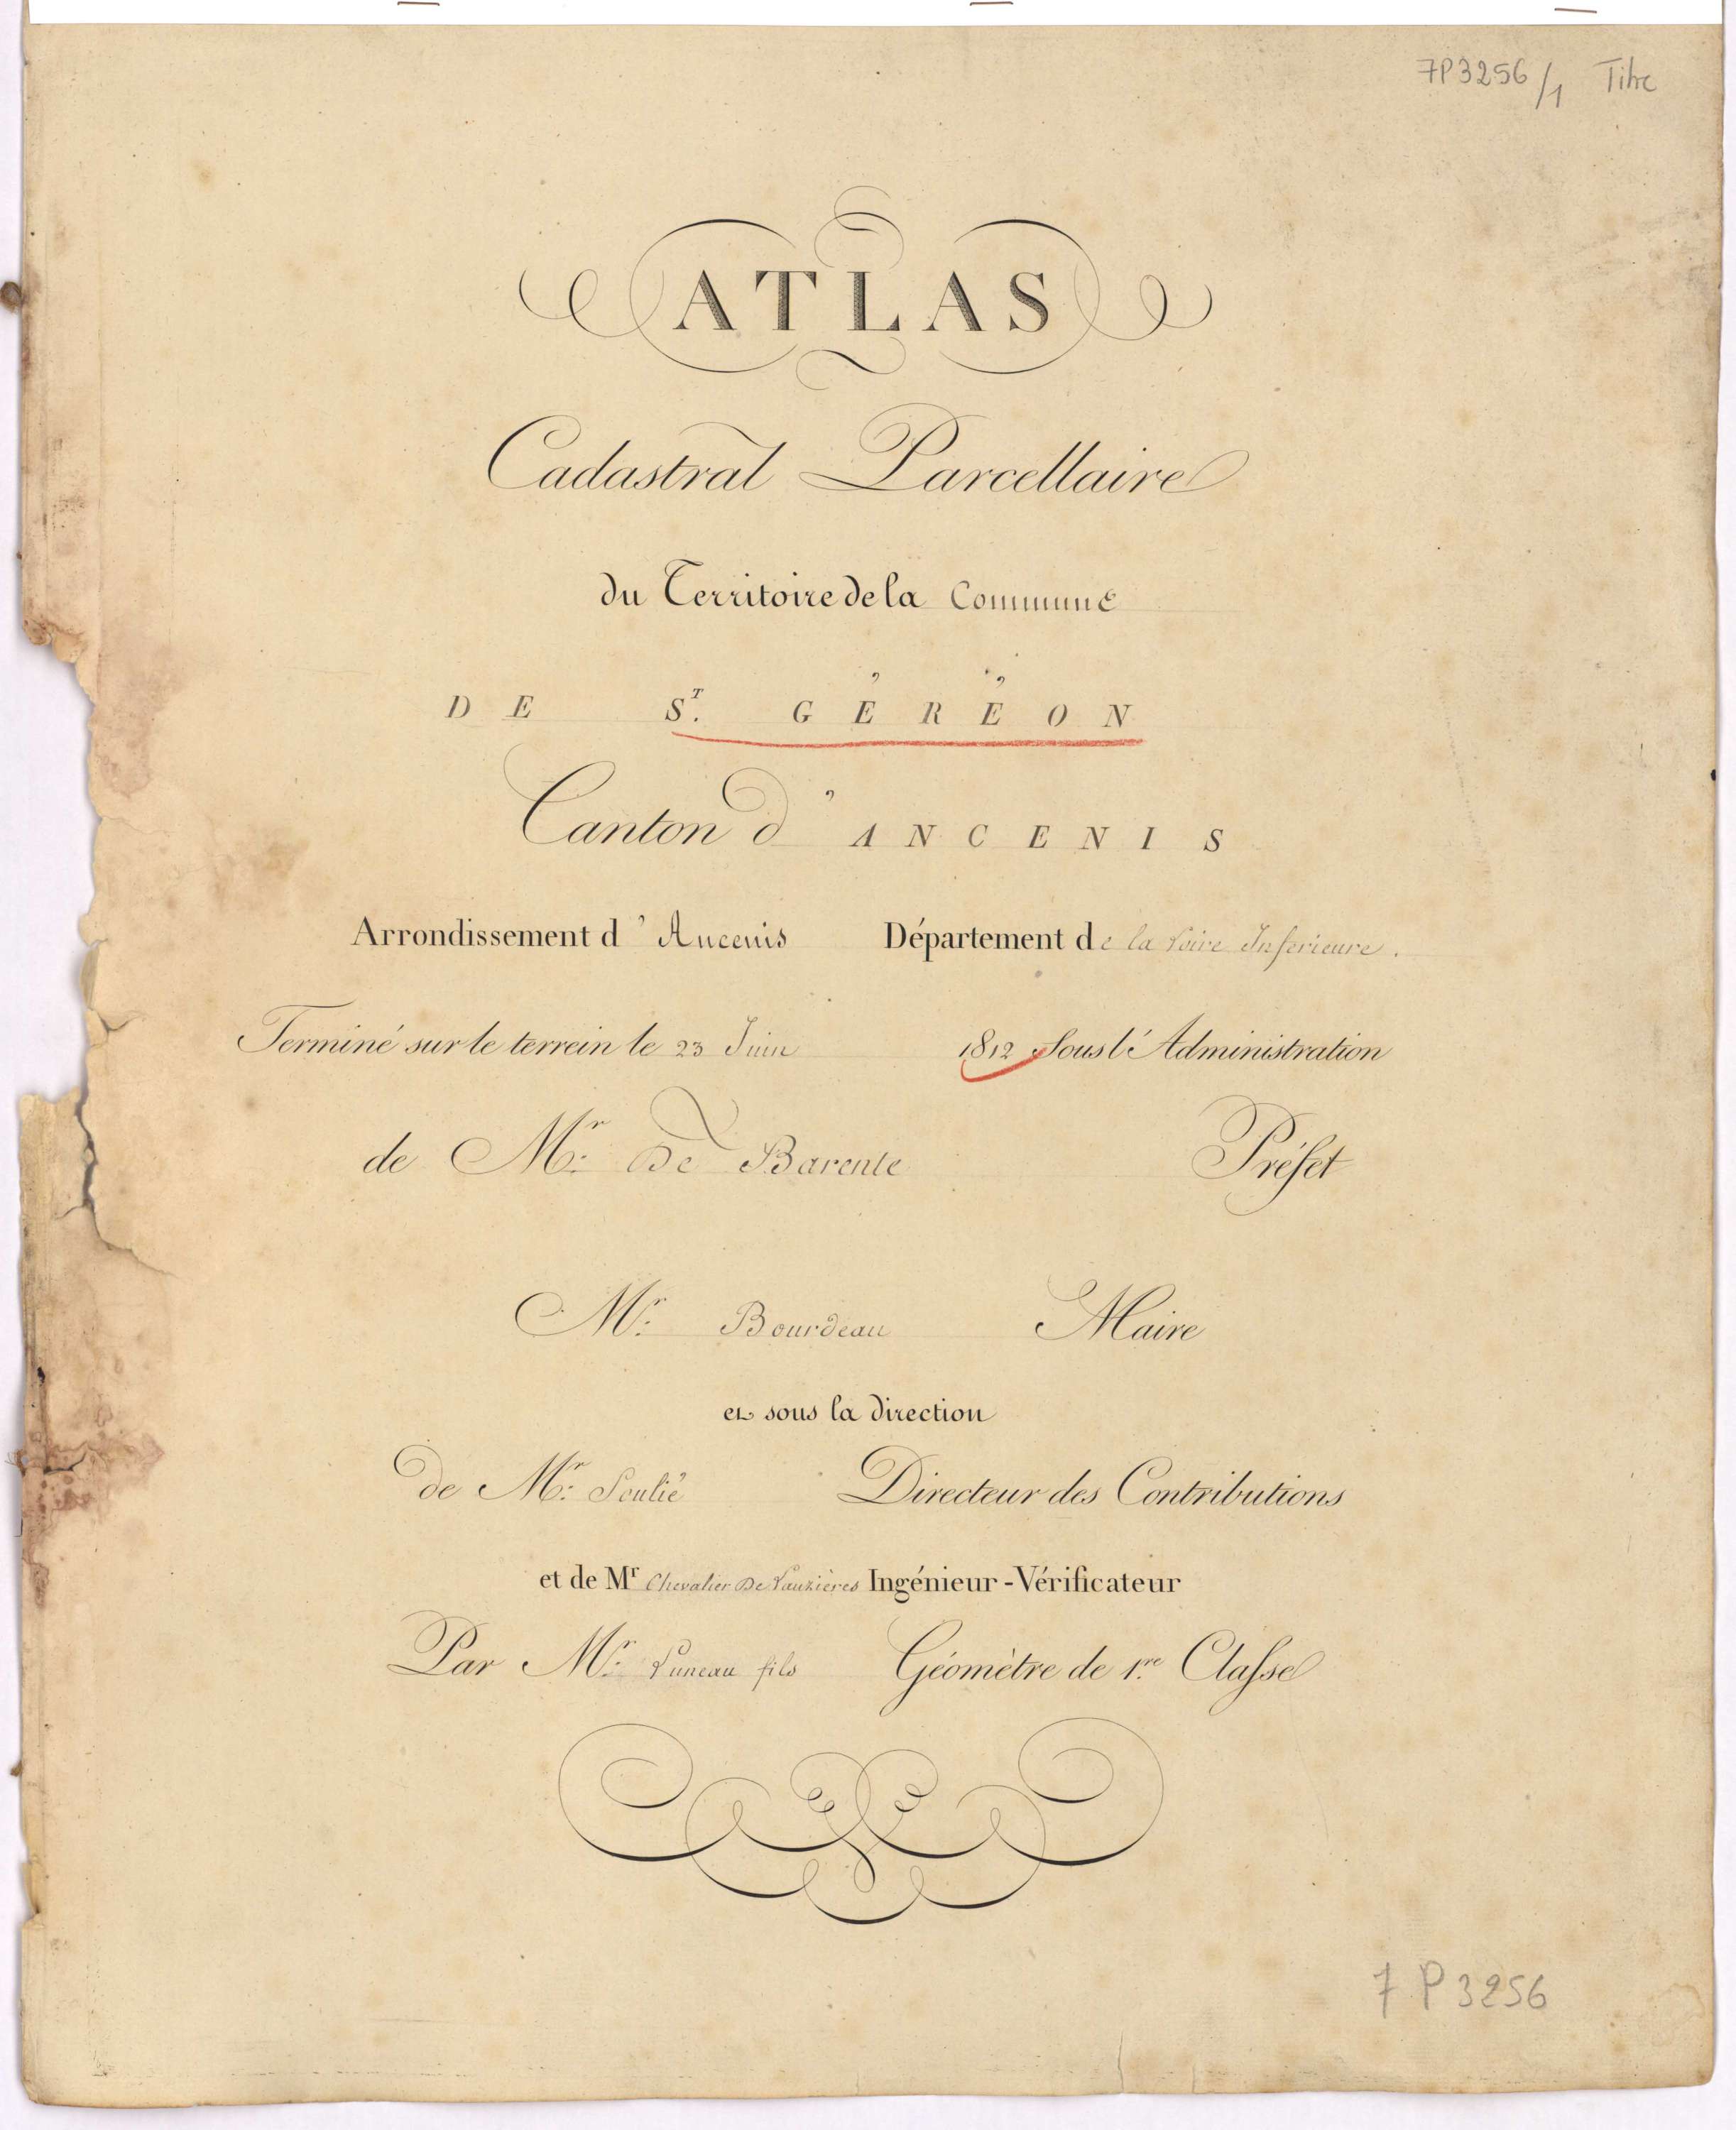 7P3256/1 Titre
ATLAS
Cadastral Parcellaire
du Territoire de la Commune
DE S.T GÉRÉON
Canton d'ANCENIS
Arrondissement d'Ancenis Département de la Loire Inferieure.
Terminé sur le terrein le 23 Juin 1812 Sous l'Administration
de Mr. De Barente Préfet
Mr. Bourdeau Maire
et sous la direction
de Mr. Soulié Directeur des Contributions
et de Mr Chevalier De Lauzières Ingénieur-Vérificateur
Par Mr. Luneau fils Géomètre de 1.re Classe
7 P 3256